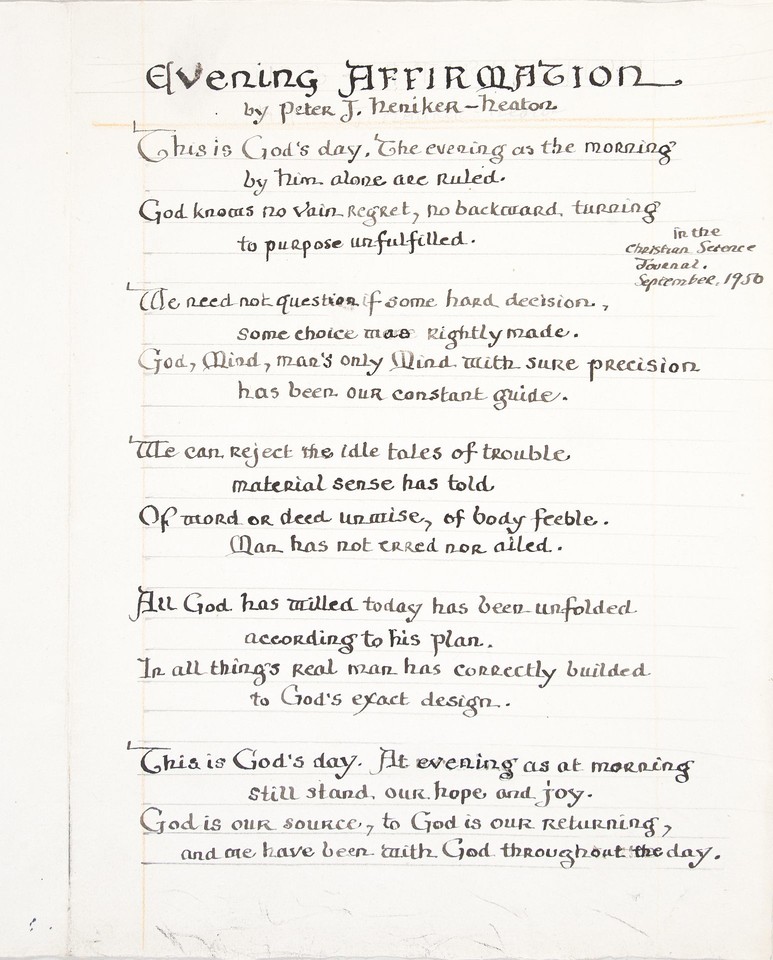 Evening Affirmation
by Peter J. Heniker-Heaton
This is God's day. The evening as the morning
by him alone are ruled.
God knows no vain regret, no backward turning
to purpose unfulfilled.
in the
Christian Science
Journal.
September, 1950
We need not question if some hard decision,
some choice was rightly made.
God, Mind, man's only Mind with sure precision
has been our constant guide.
We can reject the idle tales of trouble
material sense has told
Of word or deed unwise, of body feeble.
Man has not erred nor ailed.
All God has willed today has been unfolded
according to his plan.
In all things real man has correctly builded
to God's exact design.
This is God's day. At evening as at morning
still stand our hope and joy.
God is our source, to God is our returning,
and we have been with God throughout the day.